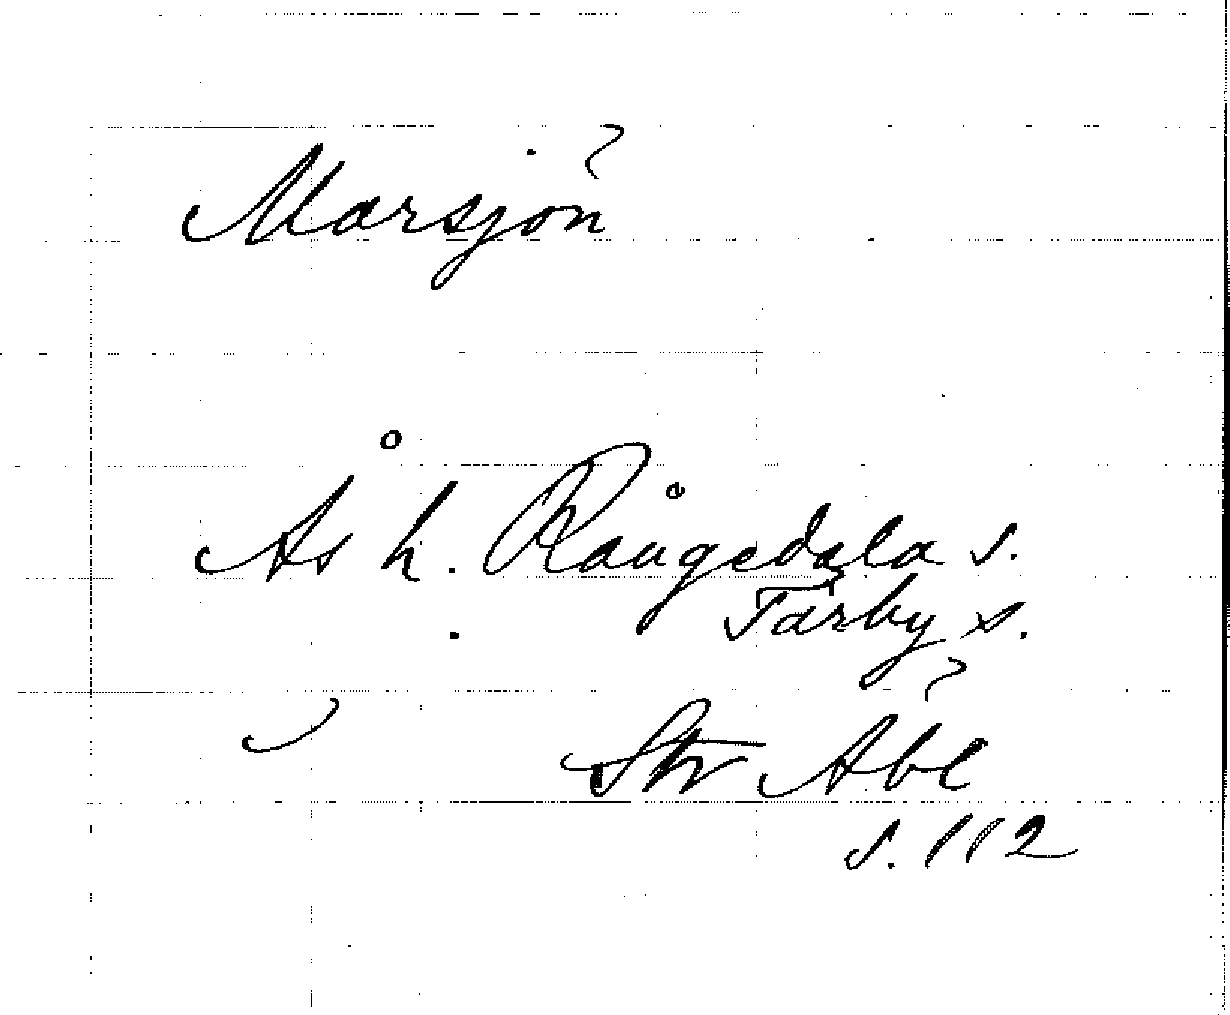 Marsjön
Ås h. Rångedala s.
Tärby s.
Str Åbl
s. 112